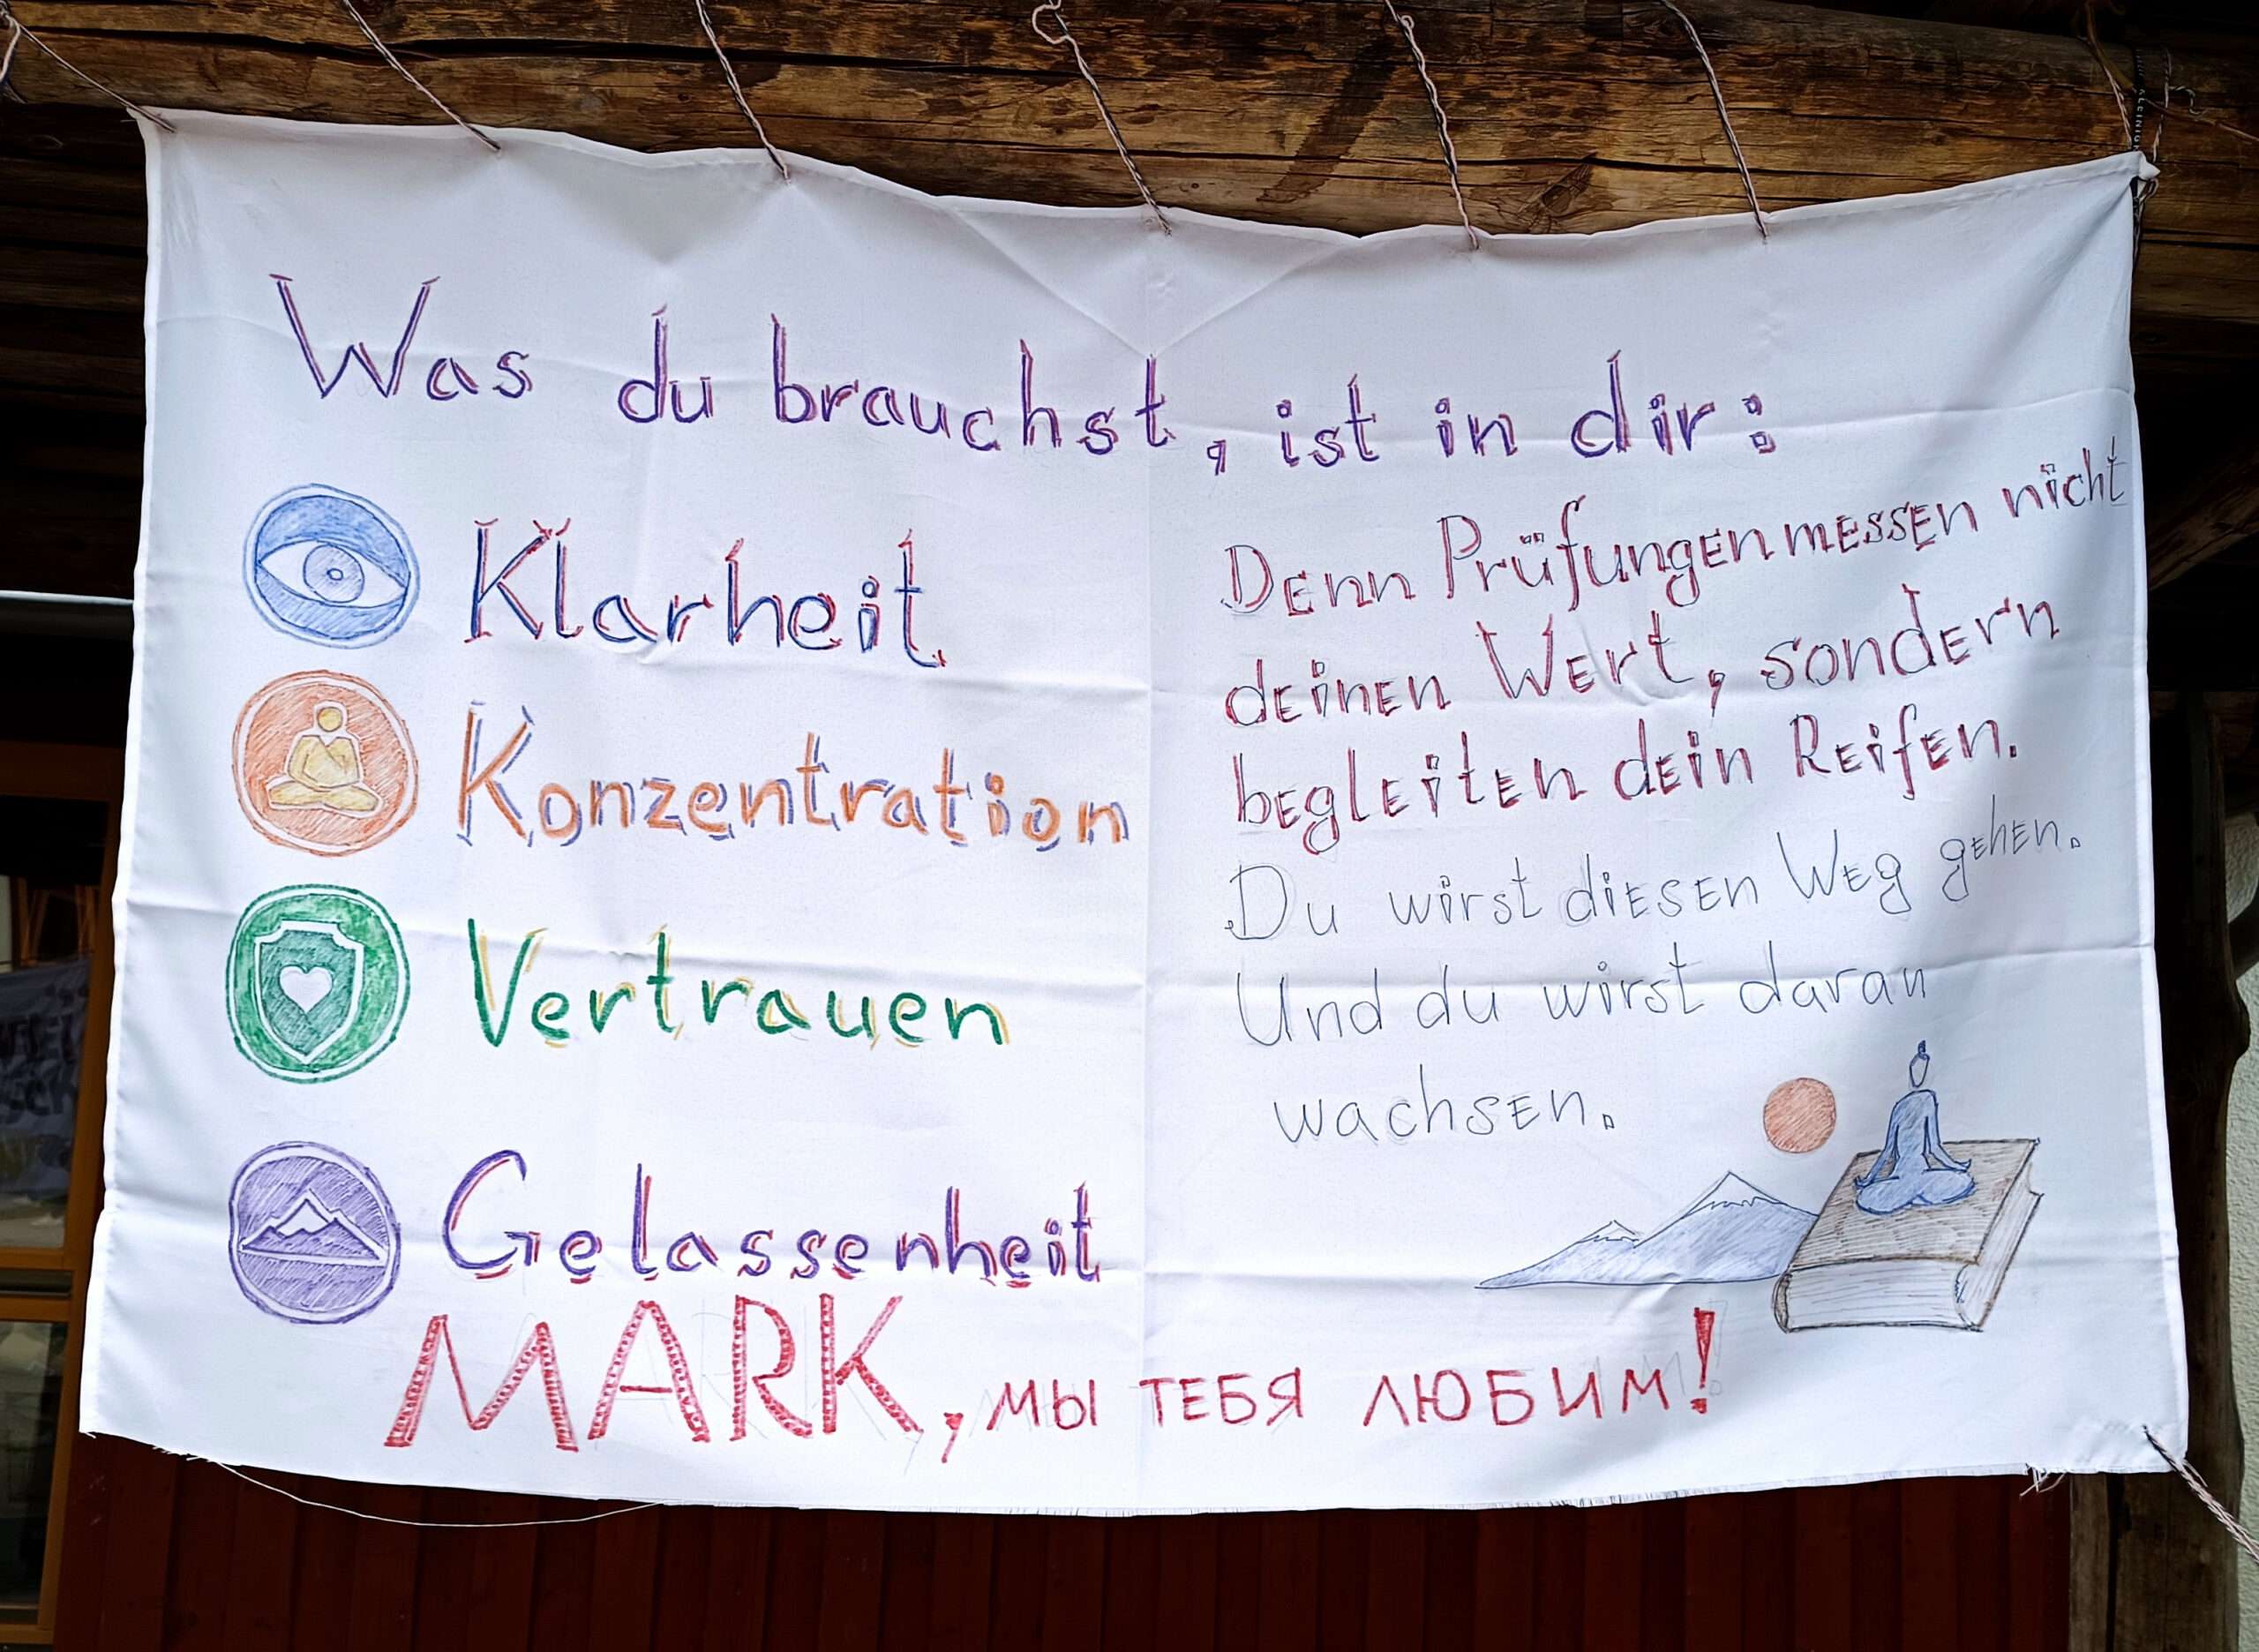 Was du brauchst, ist in dir:
Klarheit
Konzentration
Vertrauen
Gelassenheit
Denn Prüfungen messen nicht
deinen Wert, sondern
begleiten dein Reifen.
Du wirst diesen Weg gehen.
Und du wirst daran
wachsen.
MARK, мы ТЕБЯ ЛЮБИМ!